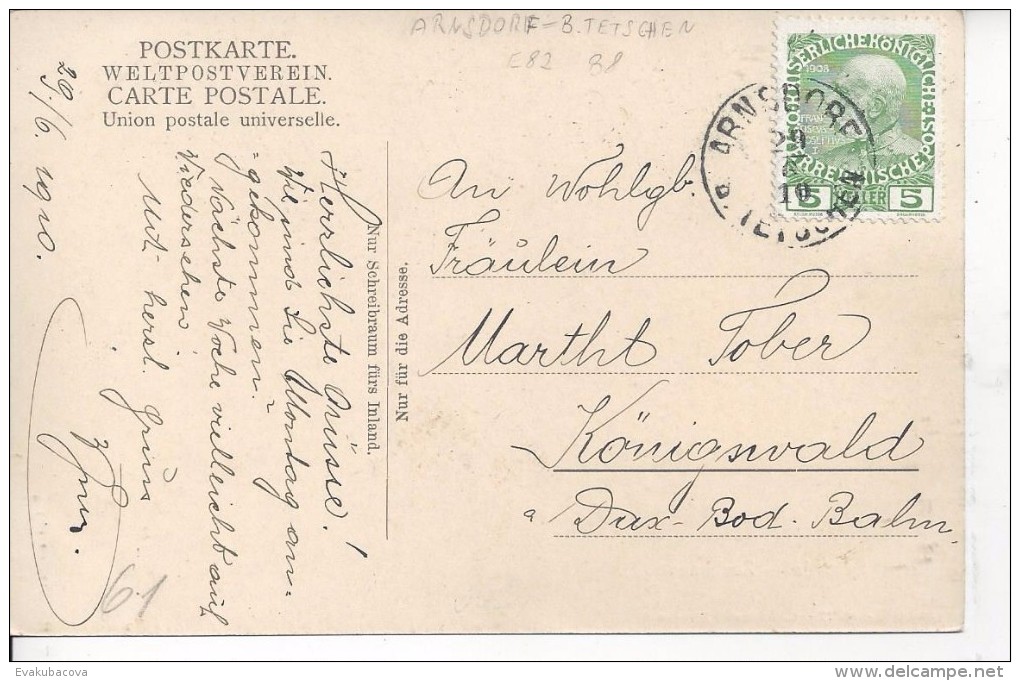 ARNSDORF-B.TETSCHEN
E82 88
POSTKARTE.
WELTPOSTVEREIN.
CARTE POSTALE.
Union postale universelle.
29./6. 1910.
Herrlichste Grüsse!
Wie sind Sie Montag an-
=gekommen?
Nächste Woche vielleicht auf
Wiedersehen
Mit herzl. Gruss
61
Nur Schreibraum fürs Inland.
Nur für die Adresse.
An Wohlgb.
Fräulein
Martht Tober
Königswald
a Dux-Bod. Bahn
KAISERLICHE KÖNIGLICHE ÖSTERREICHISCHE POST
1908
5 5
ARNSDORF
29
10
B. TETSCHEN
Evakubacova
delcampe.net